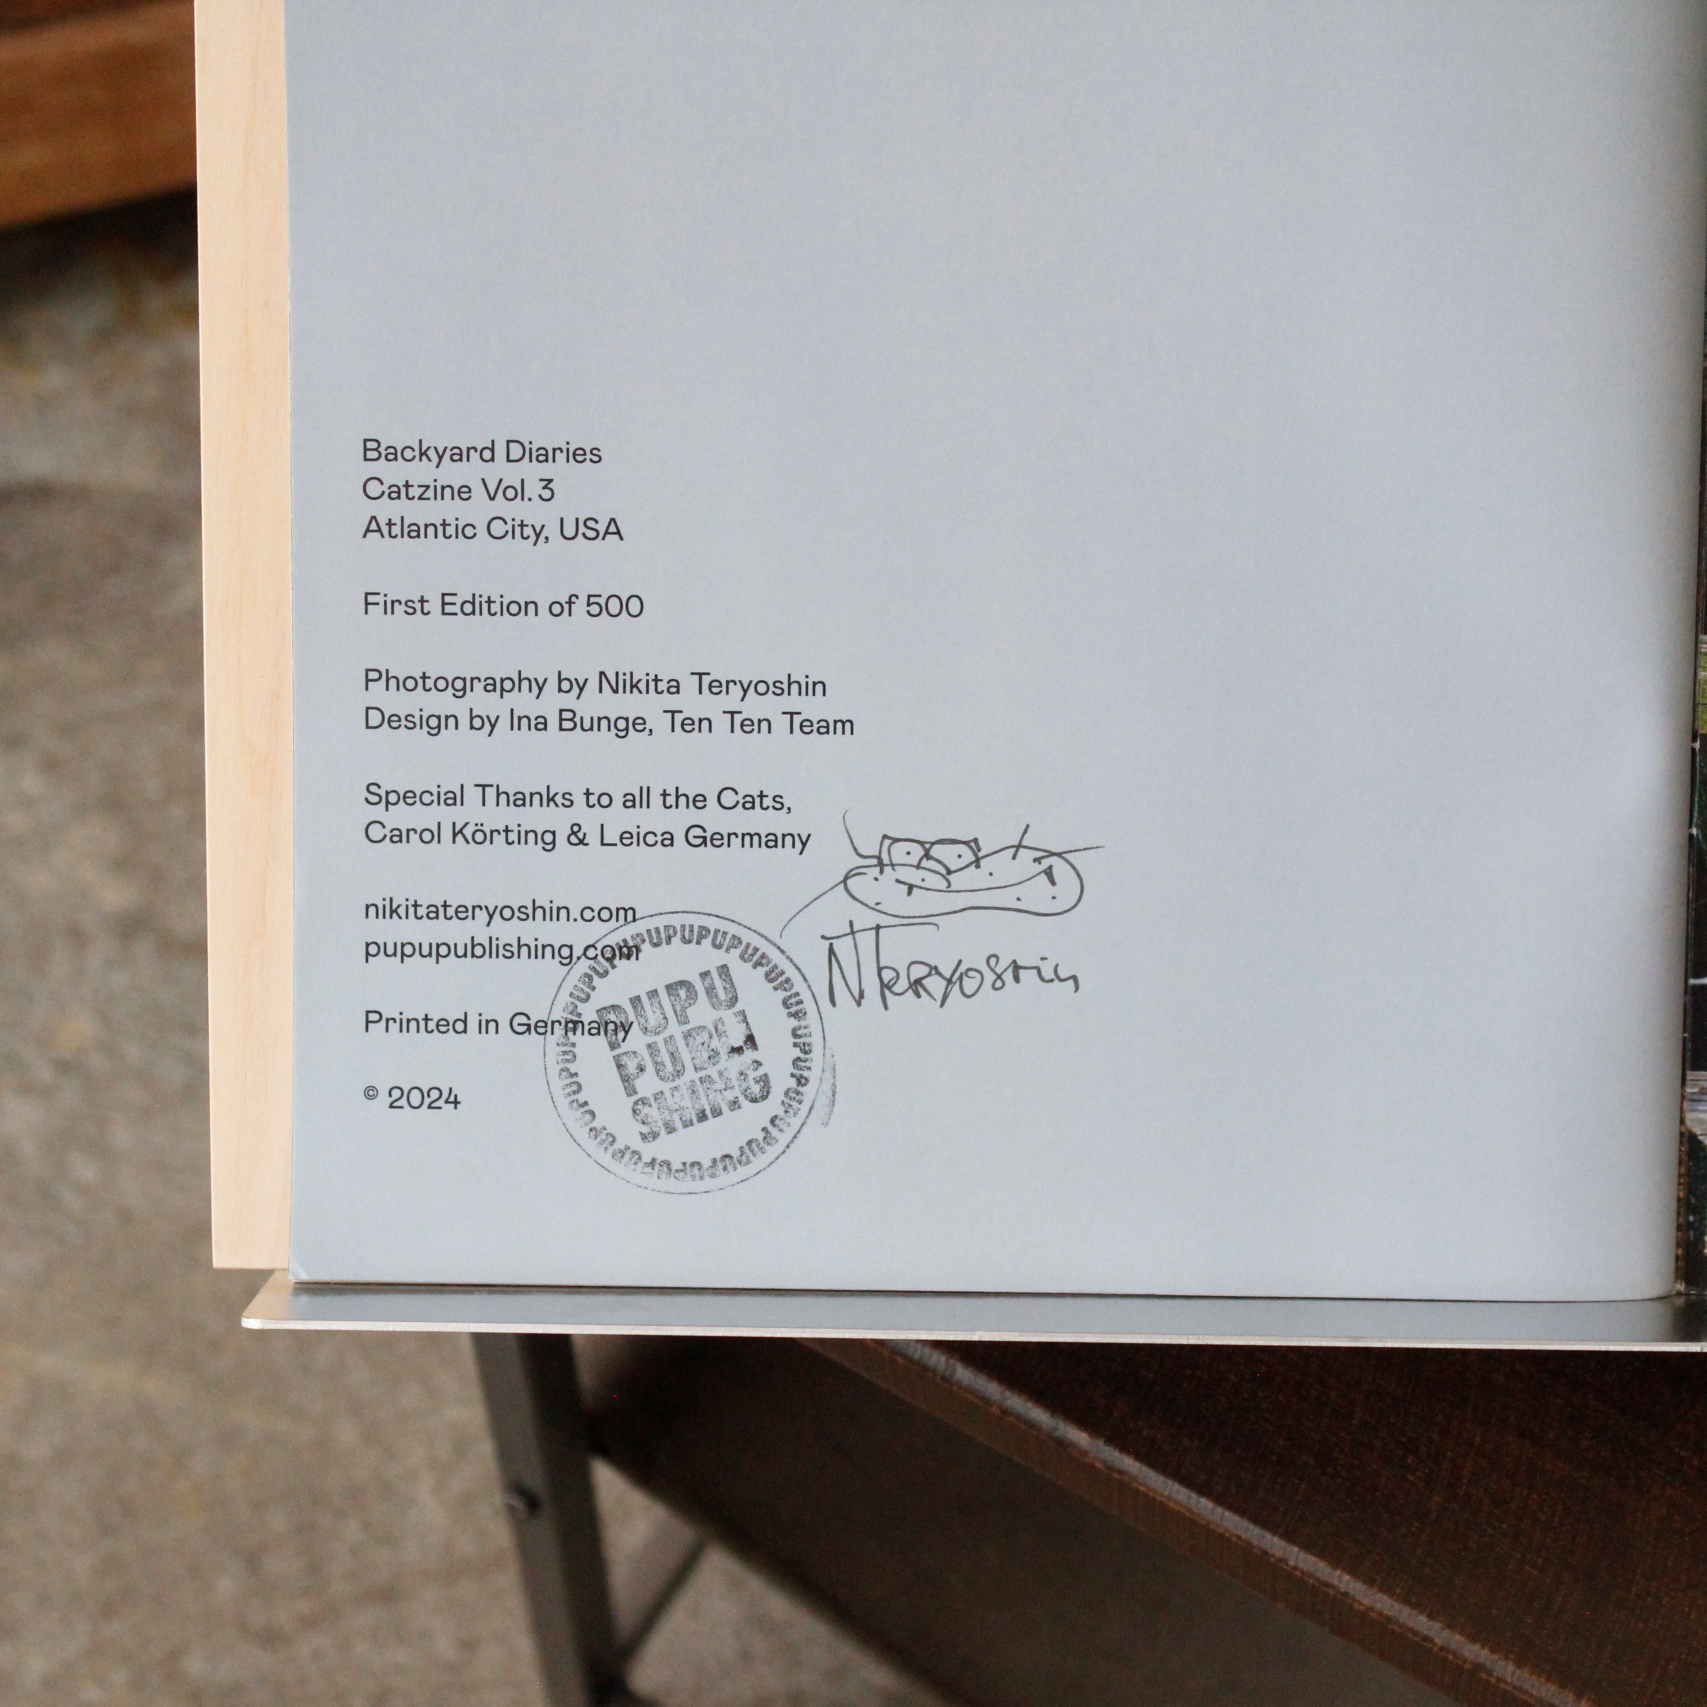 Backyard Diaries
Catzine Vol. 3
Atlantic City, USA
First Edition of 500
Photography by Nikita Teryoshin
Design by Ina Bunge, Ten Ten Team
Special Thanks to all the Cats,
Carol Körting & Leica Germany
nikitateryoshin.com
pupupublishing.com
Printed in Germany
© 2024
NTeryoshin
PUPUPUPUPUPUPUPUPUPUPUPUPUPUPUPUPUPUPU
PUPU
PUBLI
SHING